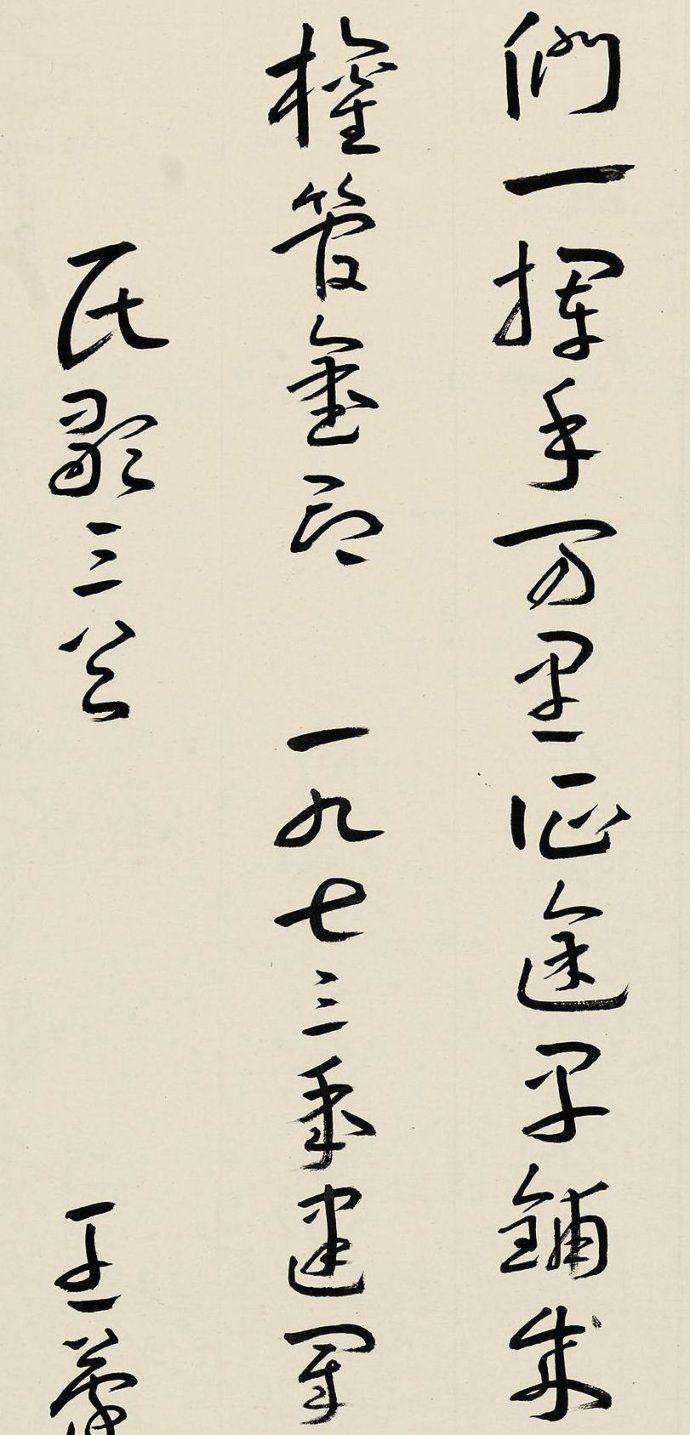 們一揮手万里征途早鋪成
權管金印 一九七三年建軍
民歌三首 王蘧